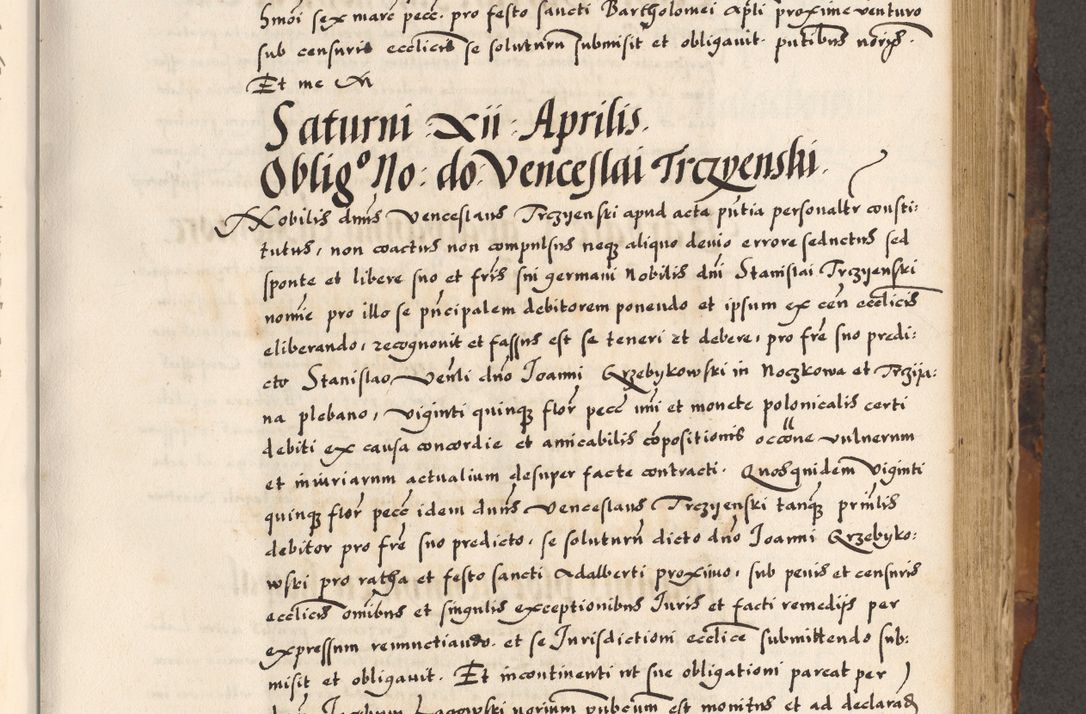 hmoi sex marc pecc pro festo sancti Bartholomei apli proxime venturo
sub censuris ecclicis se soluturu submisit et obligavit. pntibus noris.
Et me N
Saturni xii Aprilis.
Oblig° No: do: Venceslai Trczyenski.
Nobilis dnus Venceslaus Trczyenski apud acta pntia personaltr consti:
tutus, non coactus non compulsus neq aliquo devio errore seductus sed
sponte et libere suo et fris sui germani Nobilis dni Stanislai Trczyenski
nomie pro illo se pncipalem debitorem ponendo et ipsum ex cen ecclicis
eliberando, recognovit et fassus est se teneri et debere, pro fre suo predi:
cto Stanislao, Venli dno Joanni Grzebykowski in Noczkowa et Trczya:
na plebano, viginti quinq flor pecc nui et monete polonicalis certi
debiti ex causa concordie et amicabilis copositionis occone vulnerum
et iniuriarum actualium desuper facte contracti. Quosquidem viginti
quinq flor pecc idem dnus Venceslaus Trczyenski tanq prinlis
debitor pro fre suo predicto, se soluturu dicto dno Joanni Grzebyko:
wski pro ratha et festo sancti Adalberti proximo, sub penis et censuris
ecclicis omibus et singulis exceptionibus Juris et facti remedijs per
expressum renunctiando. et se Jurisdictioni ecclice submittendo sub:
misit et obligavit. Et incontinenti ut sue obligationi pareat per
Lagowski norium pubcum est monitus et ad declarad